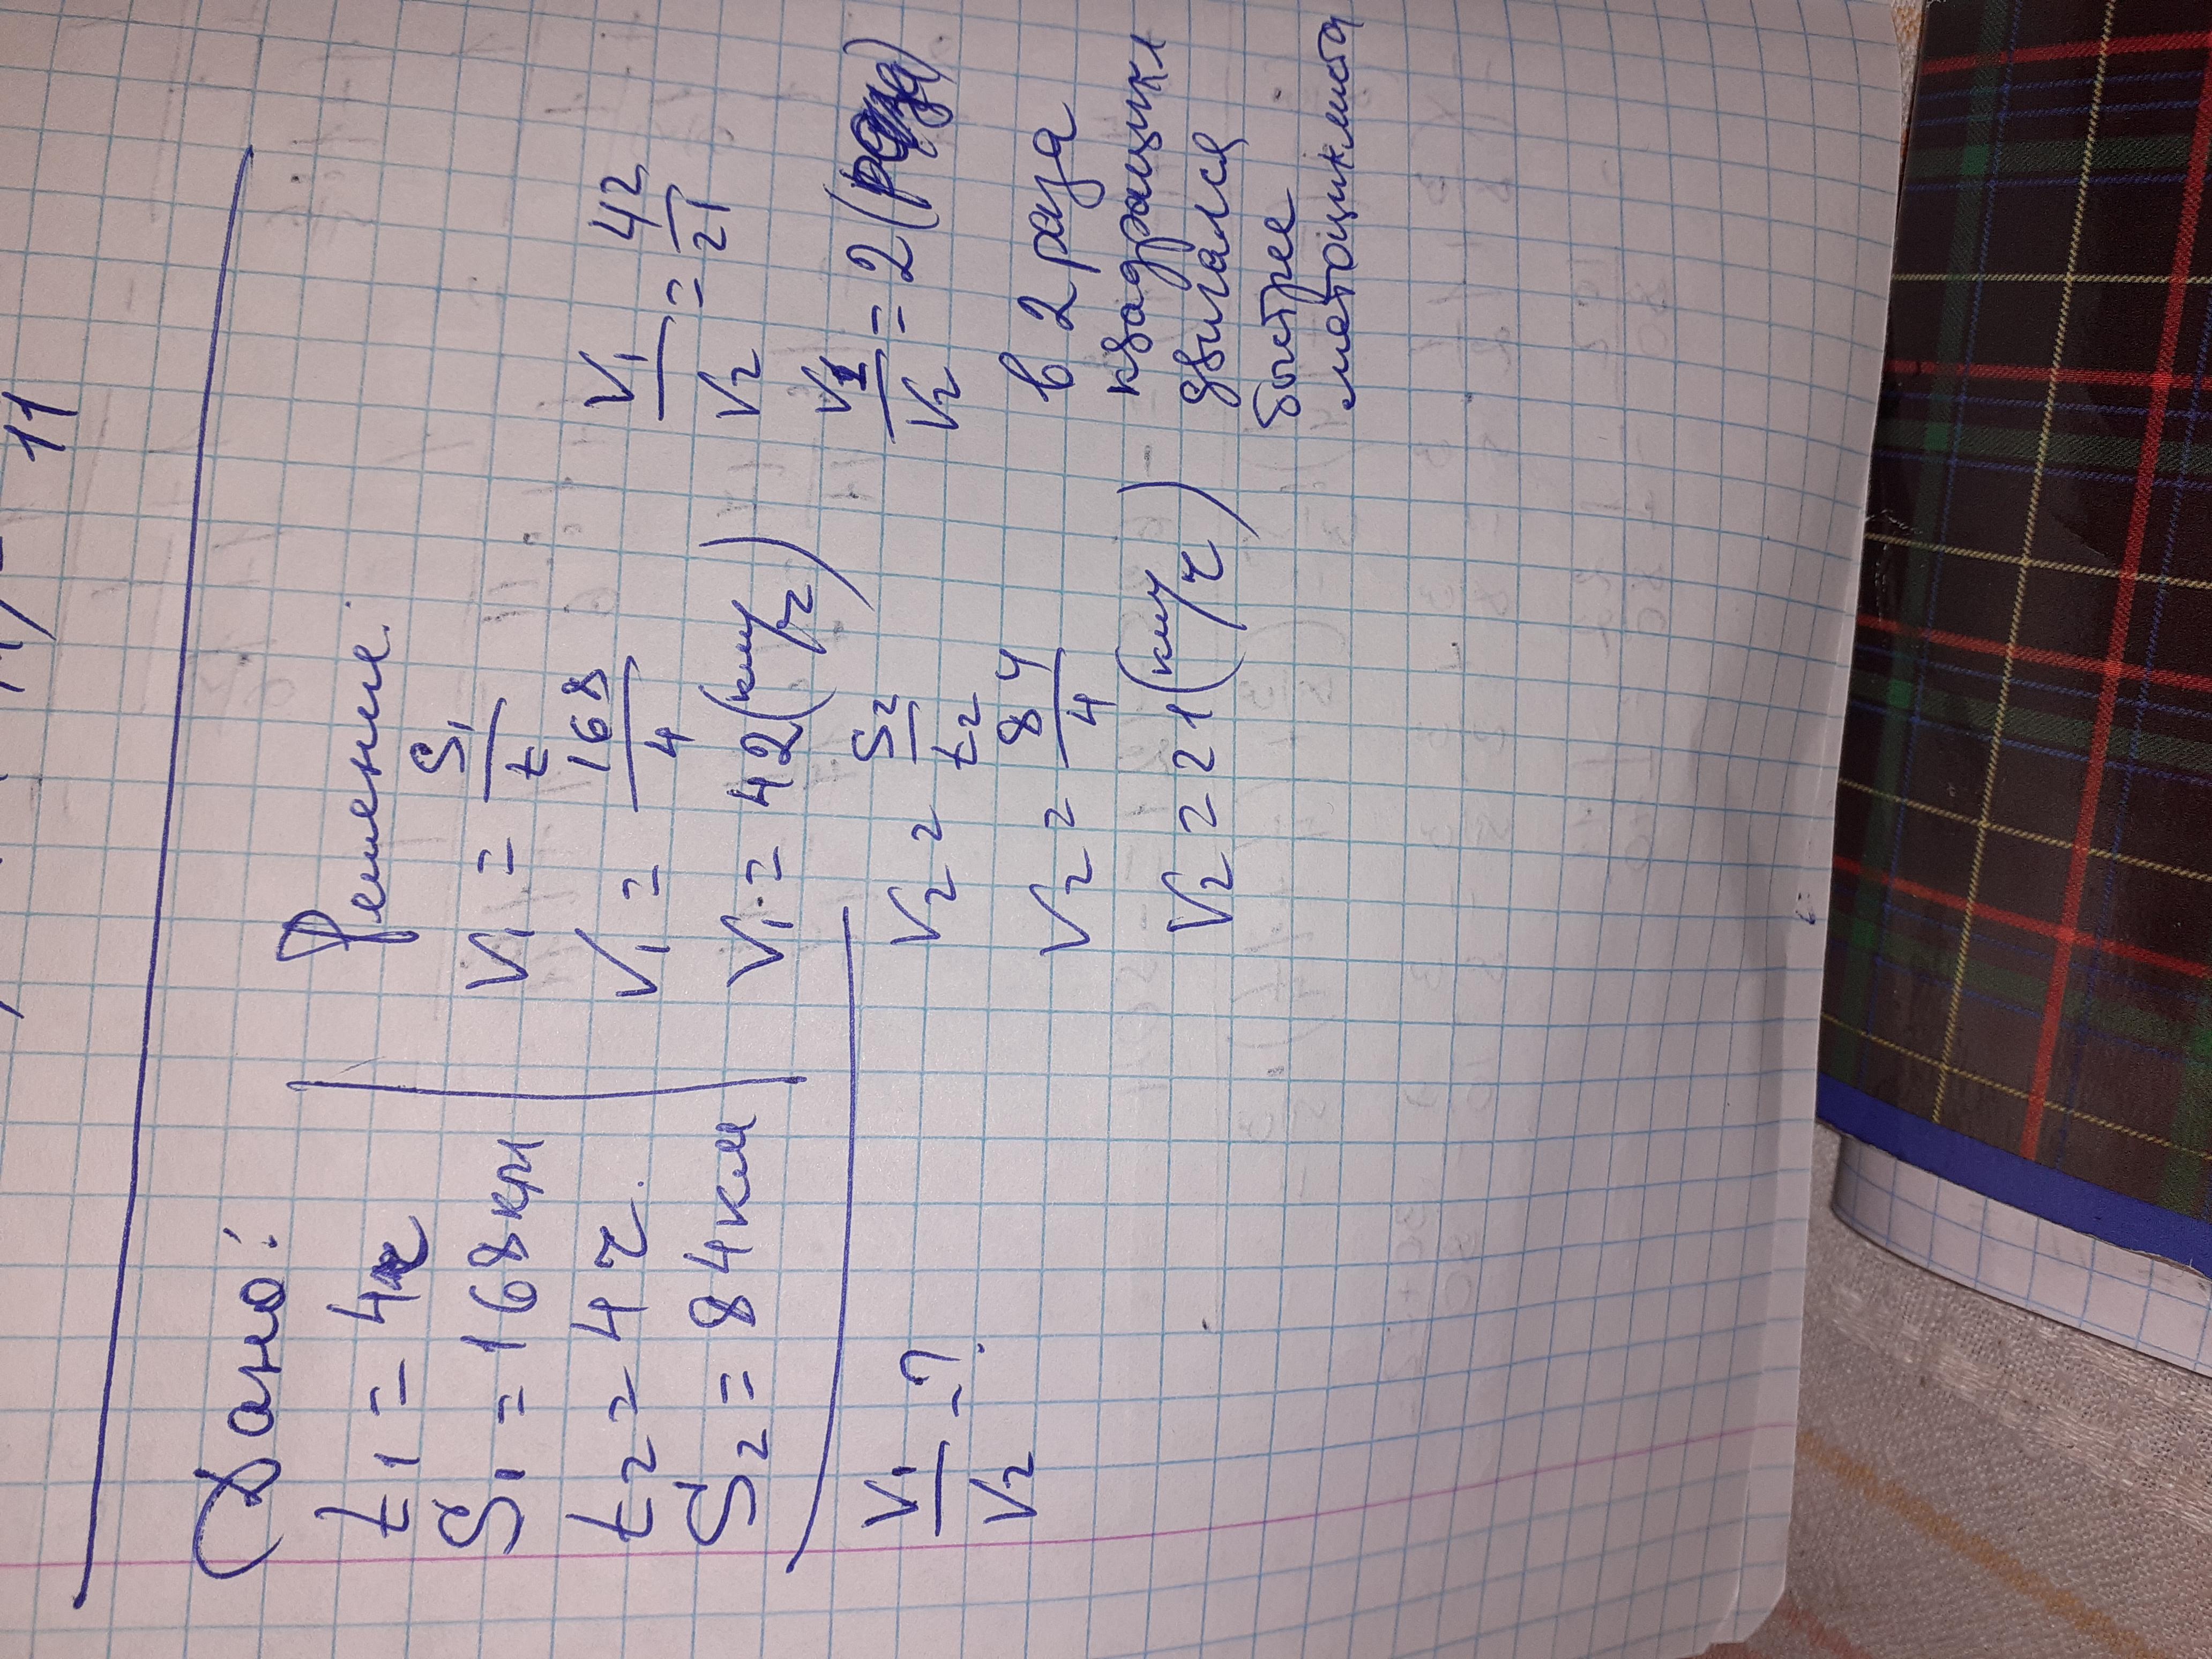 11
Дано:
t1 = 4ч
S1 = 168км
t2 = 4ч.
S2 = 84км
V1/V2 - ?
Решение:
V1 = S1/t
V1 = 168/4
V1 = 42(км/ч)
V2 = S2/t2
V2 = 84/4
V2 = 21(км/ч)
V1/V2 = 42/21
V1/V2 = 2(раза)
в 2 раза
квадрацикл
двигался
быстрее
мотоциклиста